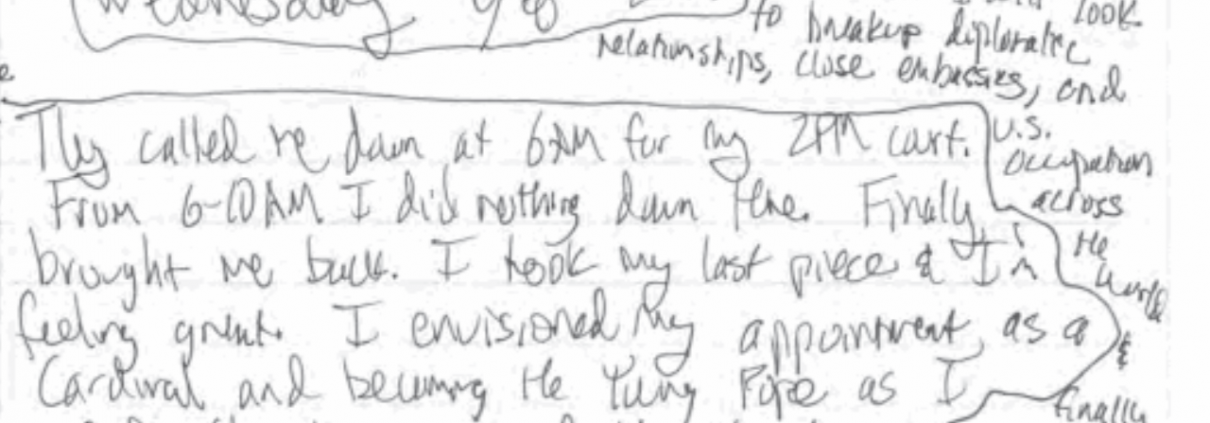 Wednesday 9/8
look
to breakup diplomatic
relationships, close embassies, and
U.S.
occupation
across
the
world
&
finally
They called me down at 6AM for my 2PM court.
From 6-10AM I did nothing down there. Finally
brought me back. I took my last piece & I'm
feeling great. I envisioned my appointment as a
Cardinal and becoming the Young Pope as I